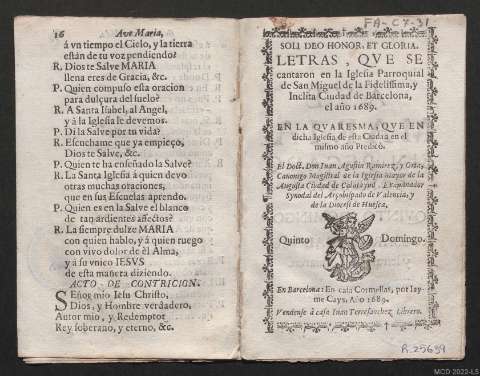 16 Ave Maria,
á vn tiempo el Cielo, y la tierra
están de tu voz pendiendo?
R. Dios te Salve MARIA
llena eres de Gracia, &c.
P. Quien compuso esta oracion
para dulçura del suelo?
R. A Santa Isabel, al Angel,
y á la Iglesia le devemos.
P. Di la Salve por tu vida?
R. Escuchame que ya empieço,
Dios te Salve, &c.
P. Quien te ha enseñado la Salve?
R. La Santa Iglesia á quien devo
otras muchas oraciones,
que en sus Escuelas aprendo.
P. Quien es en la Salve el blanco
de tan ardientes afectos?
R. La siempre dulze MARIA
con quien hablo, y á quien ruego
con vivo dolor de el Alma,
y á su vnico IESVS
de esta manera diziendo.
ACTO DE CONTRICION.
Señor mio Iesu Christo,
Dios, y Hombre verdadero,
Autor mio, y Redemptor
Rey soberano, y eterno, &c.
FA-C7-31
SOLI DEO HONOR, ET GLORIA.
LETRAS, QVE SE
cantaron en la Iglesia Parroquial
de San Miguel de la Fidelissima, y
Inclita Ciudad de Barcelona,
el año 1689.
EN LA QVARESMA, QVE EN
dicha Iglesia, de esta Ciudad en el
mismo año Predicò.
El Doct. Don Iuan Agustin Ramirez, y Orta,
Canonigo Magistral de la Iglesia mayor de la
Augusta Ciudad de Calatayud, Examinador
Synodal del Arçobispado de Valencia, y
de la Diocesi de Huesca,
Quinto Domingo.
En Barcelona: En casa Cormellas, por Iay-
me Cays, Año 1689.
Vendense à casa Iuan Terresanchez Librero.
R.25691
MCD 2022-L5